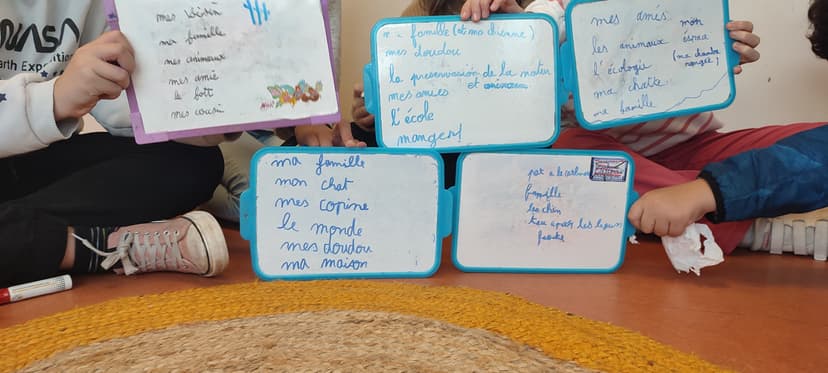 NASA
Earth Expo
mes
ma famille
mes animaux
mes amie
le foot
mes cousin
famille (et ma chienne)
mes doudou
la preservasion de la nature
mes amies et
l'école
manger!
mes amés mon
les animaux
l'écologie (ma chambre
ma chatte rangée)
ma famille
ma famille
mon chat
mes copine
le monde
mes doudou
ma maison
famille
les chin
les